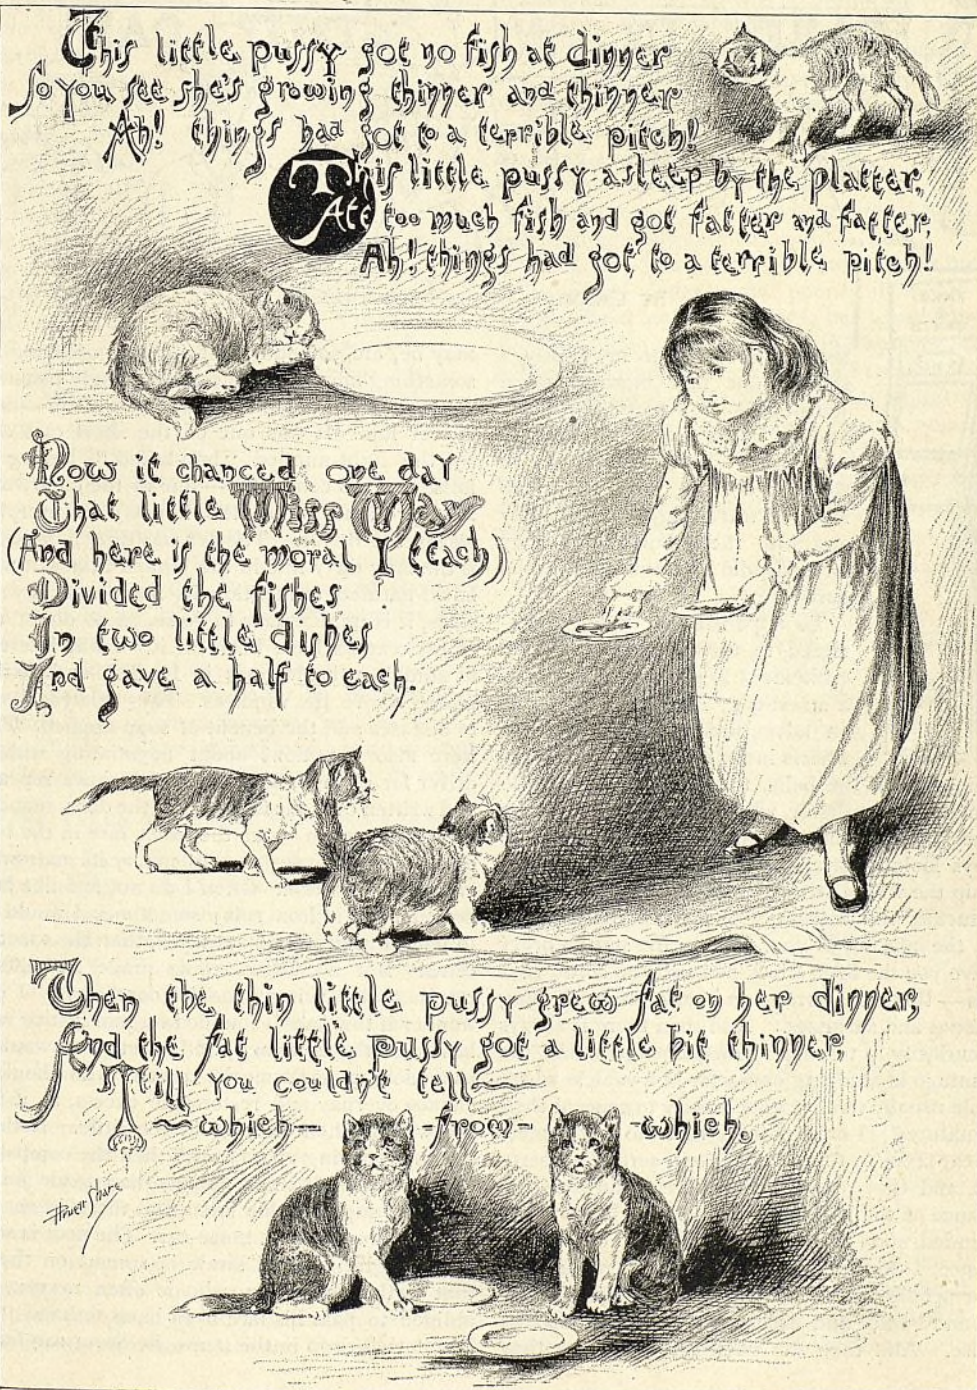 This little pussy got no fish at dinner
So you see she's growing thinner and thinner
Ah! things had got to a terrible pitch!
This little pussy asleep by the platter,
Ate too much fish and got fatter and fatter,
Ah! things had got to a terrible pitch!
Now it chanced one day
That little Miss May
(And here is the moral I teach)
Divided the fishes
In two little dishes
And gave a half to each.
Then the thin little pussy grew fat on her dinner,
And the fat little pussy got a little bit thinner,
Still you couldn't tell—
—which— -from- -which.